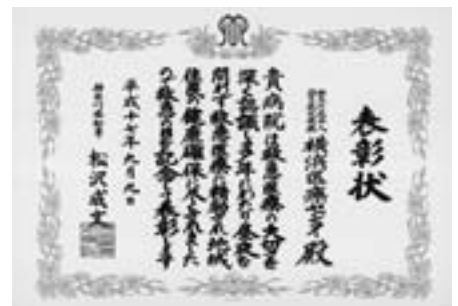 表彰状
横浜医療センター殿
貴病院は救急医療の大切さを
深く認識し多年にわたり昼夜を
問わず救急医療に精励され地域
住民の健康確保に尽くされました
ので救急の日を記念して表彰します
平成十七年九月九日
神奈川県知事 松沢成文